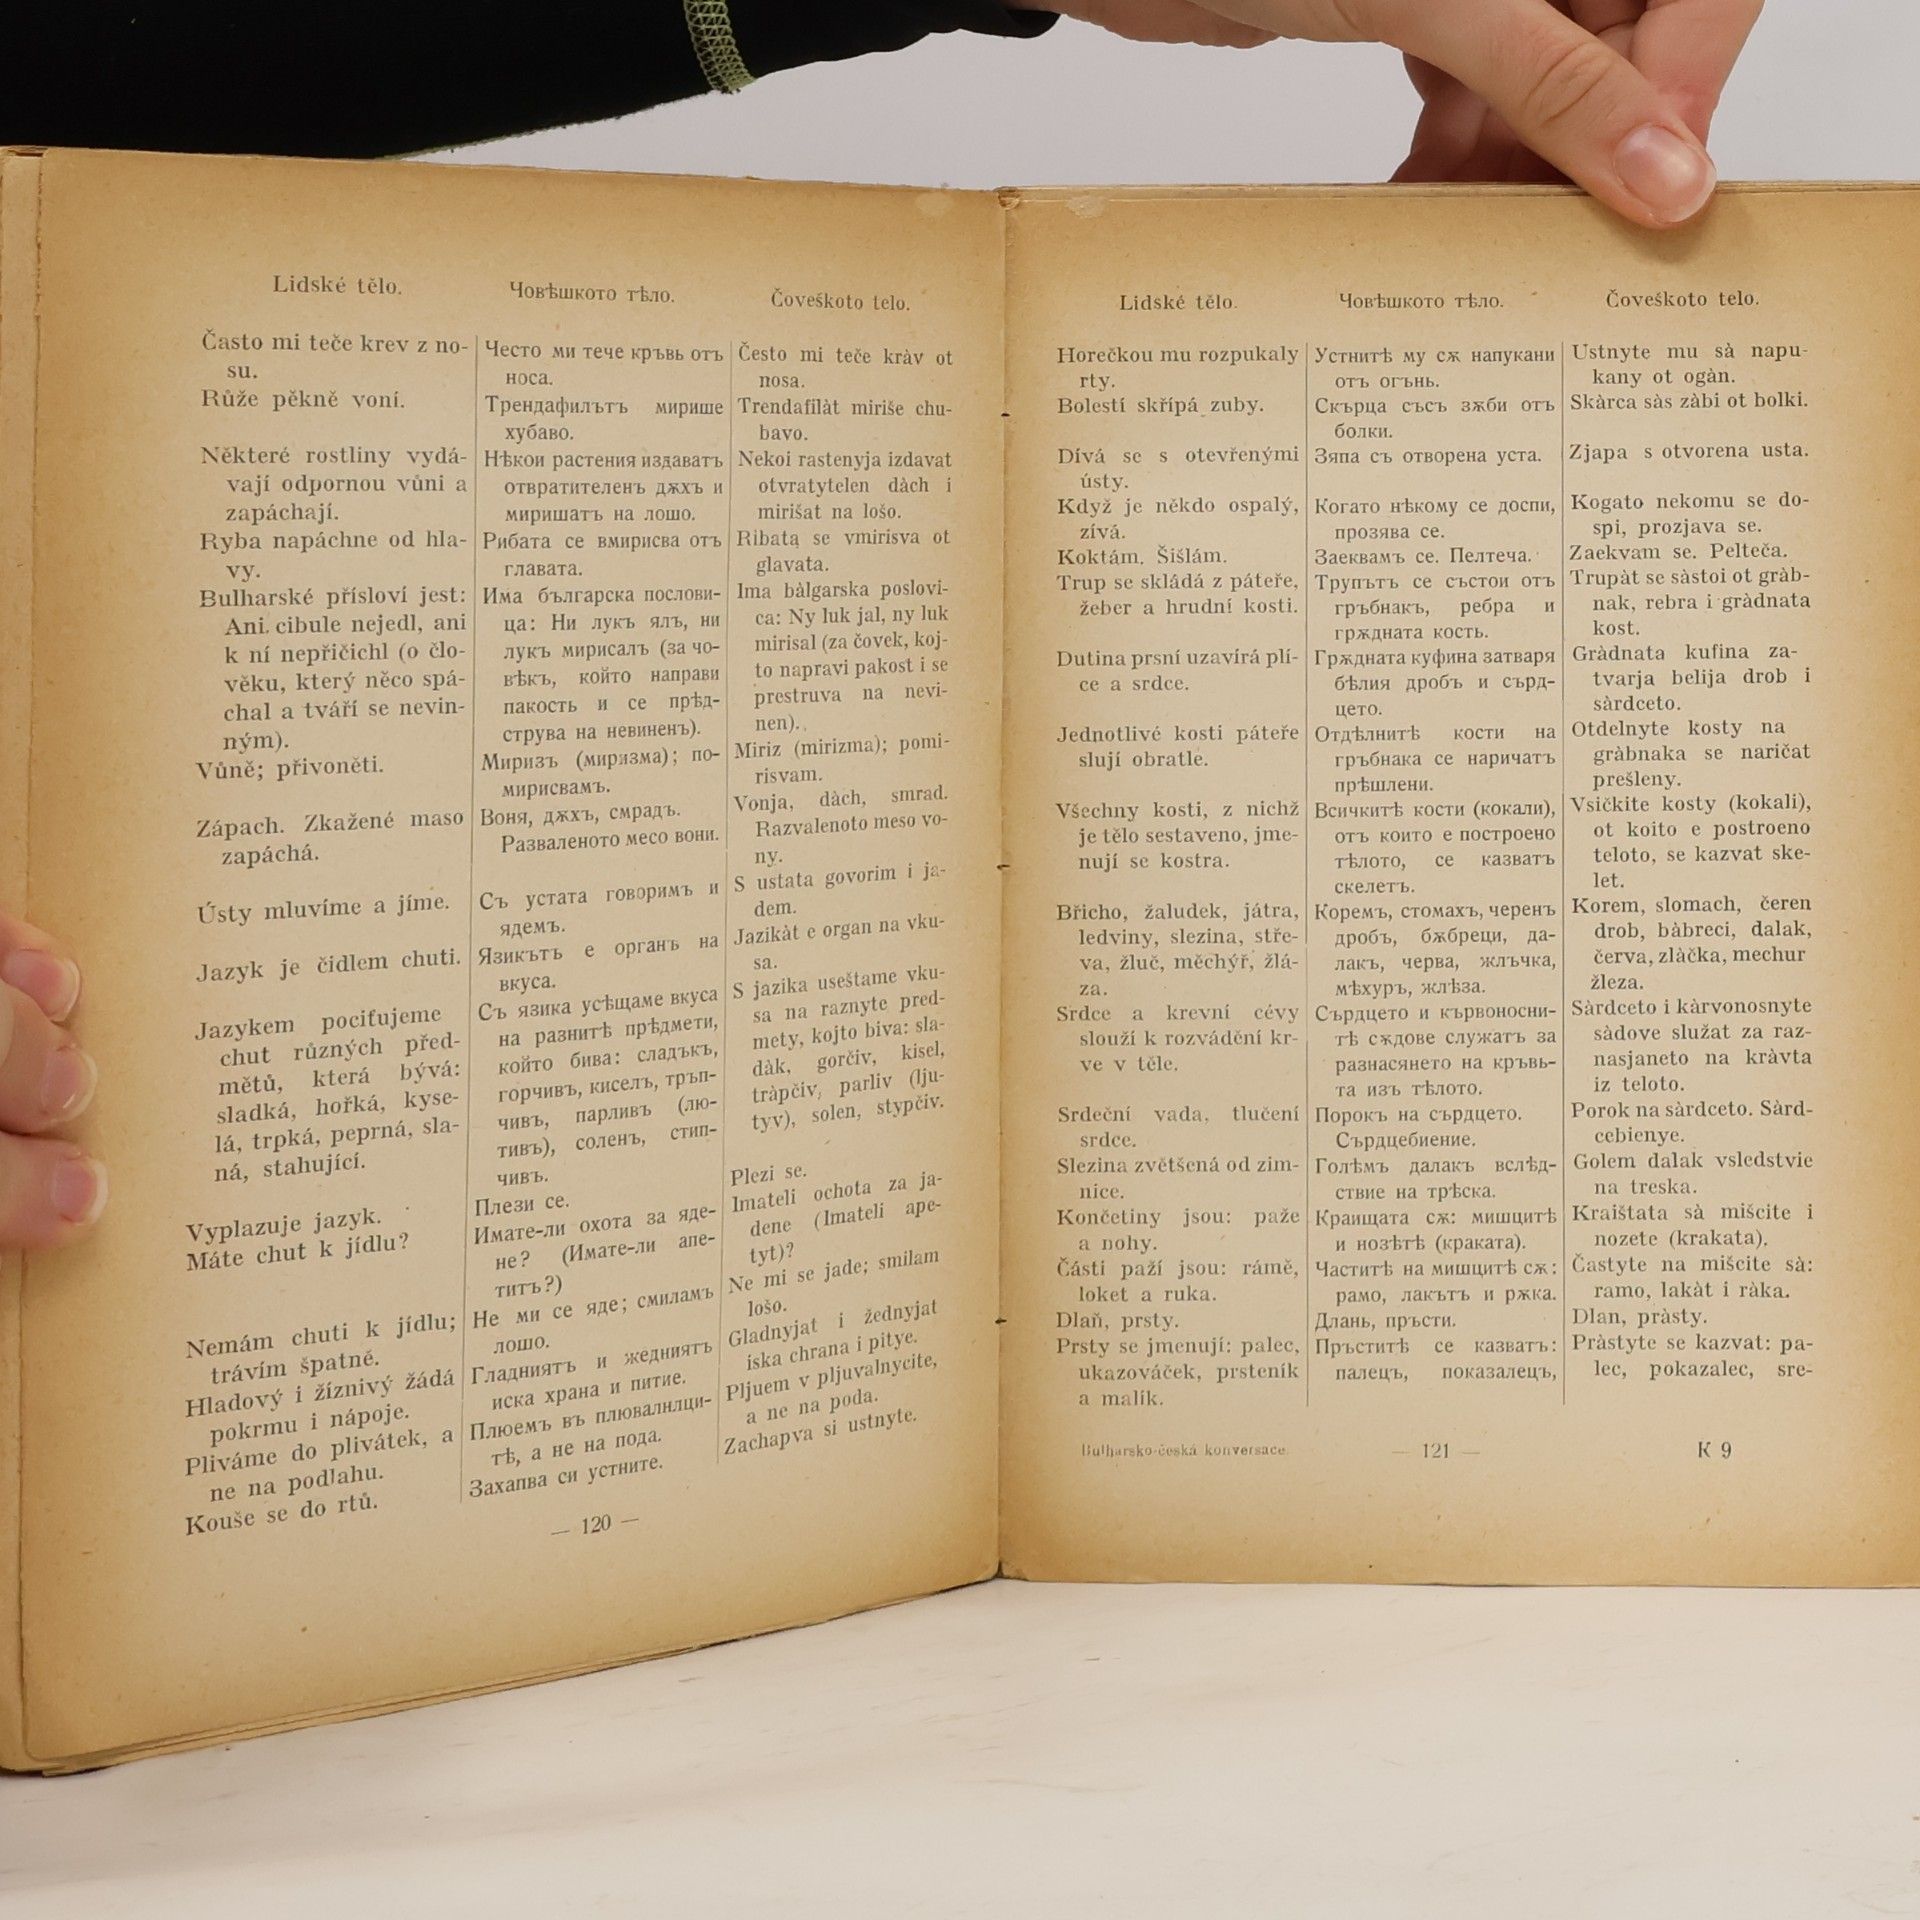 Lidské tělo.
Často mi teče krev z no-
su.
Růže pěkně voní.
Některé rostliny vydá-
vají odpornou vůni a
zapáchají.
Ryba napáchne od hla-
vy.
Bulharské přísloví jest:
Ani cibule nejedl, ani
k ní nepřičichl (o člo-
věku, který něco spá-
chal a tváří se nevin-
ným).
Vůně; přivoněti.
Zápach. Zkažené maso
zapáchá.
Ústy mluvíme a jíme.
Jazyk je čidlem chuti.
Jazykem pociťujeme
chut různých před-
mětů, která bývá:
sladká, hořká, kyse-
lá, trpká, peprná, sla-
ná, stahující.
Vyplazuje jazyk.
Máte chut k jídlu?
Nemám chuti k jídlu;
trávím špatně.
Hladový i žíznivý žádá
pokrmu i nápoje.
Pliváme do plivátek, a
ne na podlahu.
Kouše se do rtů.
Човѣшкото тѣло.
Често ми тече кръвь отъ
носа.
Трендафилътъ мирише
хубаво.
Нѣкои растения издаватъ
отвратителенъ джхъ и
миришатъ на лошо.
Рибата се вмирисва отъ
главата.
Има българска послови-
ца: Ни лукъ ялъ, ни
лукъ мирисалъ (за чо-
вѣкъ, който направи
пакость и се прѣд-
струва на невиненъ).
Миризъ (миризма); по-
мирисвамъ.
Воня, джхъ, смрадъ.
Разваленото месо вони.
Съ устата говоримъ и
ядемъ.
Язикътъ е органъ на
вкуса.
Съ язика усѣщаме вкуса
на разнитѣ прѣдмети,
който бива: сладъкъ,
горчивъ, киселъ, тръп-
чивъ, парливъ (лю-
тивъ), соленъ, стип-
чивъ.
Плези се.
Имате-ли охота за яде-
не? (Имате-ли апе-
титъ?)
Не ми се яде; смиламъ
лошо.
Гладниятъ и жедниятъ
иска храна и питие.
Плюемъ въ плювалнлци-
тѣ, а не на пода.
Захапва си устните.
Čoveškoto telo.
Često mi teče kràv ot
nosa.
Trendafilàt miriše chu-
bavo.
Nekoi rastenyja izdavat
otvratytelen dàch i
mirišat na lošo.
Ribata se vmirisva ot
glavata.
Ima bàlgarska poslovi-
ca: Ny luk jal, ny luk
mirisal (za čovek, koj-
to napravi pakost i se
prestruva na nevi-
nen).
Miriz (mirizma); pomi-
risvam.
Vonja, dàch, smrad.
Razvalenoto meso vo-
ny.
S ustata govorim i ja-
dem.
Jazikàt e organ na vku-
sa.
S jazika useštame vku-
sa na raznyte pred-
mety, kojto biva: sla-
dàk, gorčiv, kisel,
tràpčiv, parliv (lju-
tyv), solen, stypčiv.
Plezi se.
Imateli ochota za ja-
dene (Imateli ape-
tyt)?
Ne mi se jade; smilam
lošo.
Gladnyjat i žednyjat
iska chrana i pitye.
Pljuem v pljuvalnycite,
a ne na poda.
Zachapva si ustnyte.
— 120 —
Lidské tělo.
Horečkou mu rozpukaly
rty.
Bolestí skřípá zuby.
Dívá se s otevřenými
ústy.
Když je někdo ospalý,
zívá.
Koktám. Šišlám.
Trup se skládá z páteře,
žeber a hrudní kosti.
Dutina prsní uzavírá plí-
ce a srdce.
Jednotlivé kosti páteře
slují obratle.
Všechny kosti, z nichž
je tělo sestaveno, jme-
nují se kostra.
Břicho, žaludek, játra,
ledviny, slezina, stře-
va, žluč, měchýř, žlá-
za.
Srdce a krevní cévy
slouží k rozvádění kr-
ve v těle.
Srdeční vada, tlučení
srdce.
Slezina zvětšená od zim-
nice.
Končetiny jsou: paže
a nohy.
Části paží jsou: rámě,
loket a ruka.
Dlaň, prsty.
Prsty se jmenují: palec,
ukazováček, prsteník
a malík.
Човѣшкото тѣло.
Устнитѣ му сѫ напукани
отъ огънь.
Скърца съсъ зѫби отъ
болки.
Зяпа съ отворена уста.
Когато нѣкому се доспи,
прозява се.
Заеквамъ се. Пелтеча.
Трупътъ се състои отъ
гръбнакъ, ребра и
грѫдната кость.
Грѫдната куфина затваря
бѣлия дробъ и сърд-
цето.
Отдѣлнитѣ кости на
гръбнака се наричатъ
прѣшлени.
Всичкитѣ кости (кокали),
отъ които е построено
тѣлото, се казватъ
скелетъ.
Коремъ, стомахъ, черенъ
дробъ, бѫбреци, да-
лакъ, черва, жлъчка,
мѣхуръ, жлѣза.
Сърдцето и кървоносни-
тѣ сѫдове служатъ за
разнасянето на кръвь-
та изъ тѣлото.
Порокъ на сърдцето.
Сърдцебиение.
Голѣмъ далакъ вслѣд-
ствие на трѣска.
Краищата сѫ: мишцитѣ
и нозѣтѣ (краката).
Частитѣ на мишцитѣ сѫ:
рамо, лакътъ и рѫка.
Длань, пръсти.
Пръститѣ се казватъ:
палецъ, показалецъ,
Čoveškoto telo.
Ustnyte mu sà napu-
kany ot ogàn.
Skàrca sàs zàbi ot bolki.
Zjapa s otvorena usta.
Kogato nekomu se do-
spi, prozjava se.
Zaekvam se. Pelteča.
Trupàt se sàstoi ot gràb-
nak, rebra i gràdnata
kost.
Gràdnata kufina za-
tvarja belija drob i
sàrdceto.
Otdelnyte kosty na
gràbnaka se naričat
prešleny.
Vsičkite kosty (kokali),
ot koito e postroeno
teloto, se kazvat ske-
let.
Korem, slomach, čeren
drob, bàbreci, dalak,
červa, zlàčka, mechur
žleza.
Sàrdceto i kàrvonosnyte
sàdove služat za raz-
nasjaneto na kràvta
iz teloto.
Porok na sàrdceto. Sàrd-
cebienye.
Golem dalak vsledstvie
na treska.
Kraištata sà mišcite i
nozete (krakata).
Častyte na mišcite sà:
ramo, lakàt i ràka.
Dlan, pràsty.
Pràstyte se kazvat: pa-
lec, pokazalec, sre-
Bulharsko-česká konversace
— 121 —
K 9